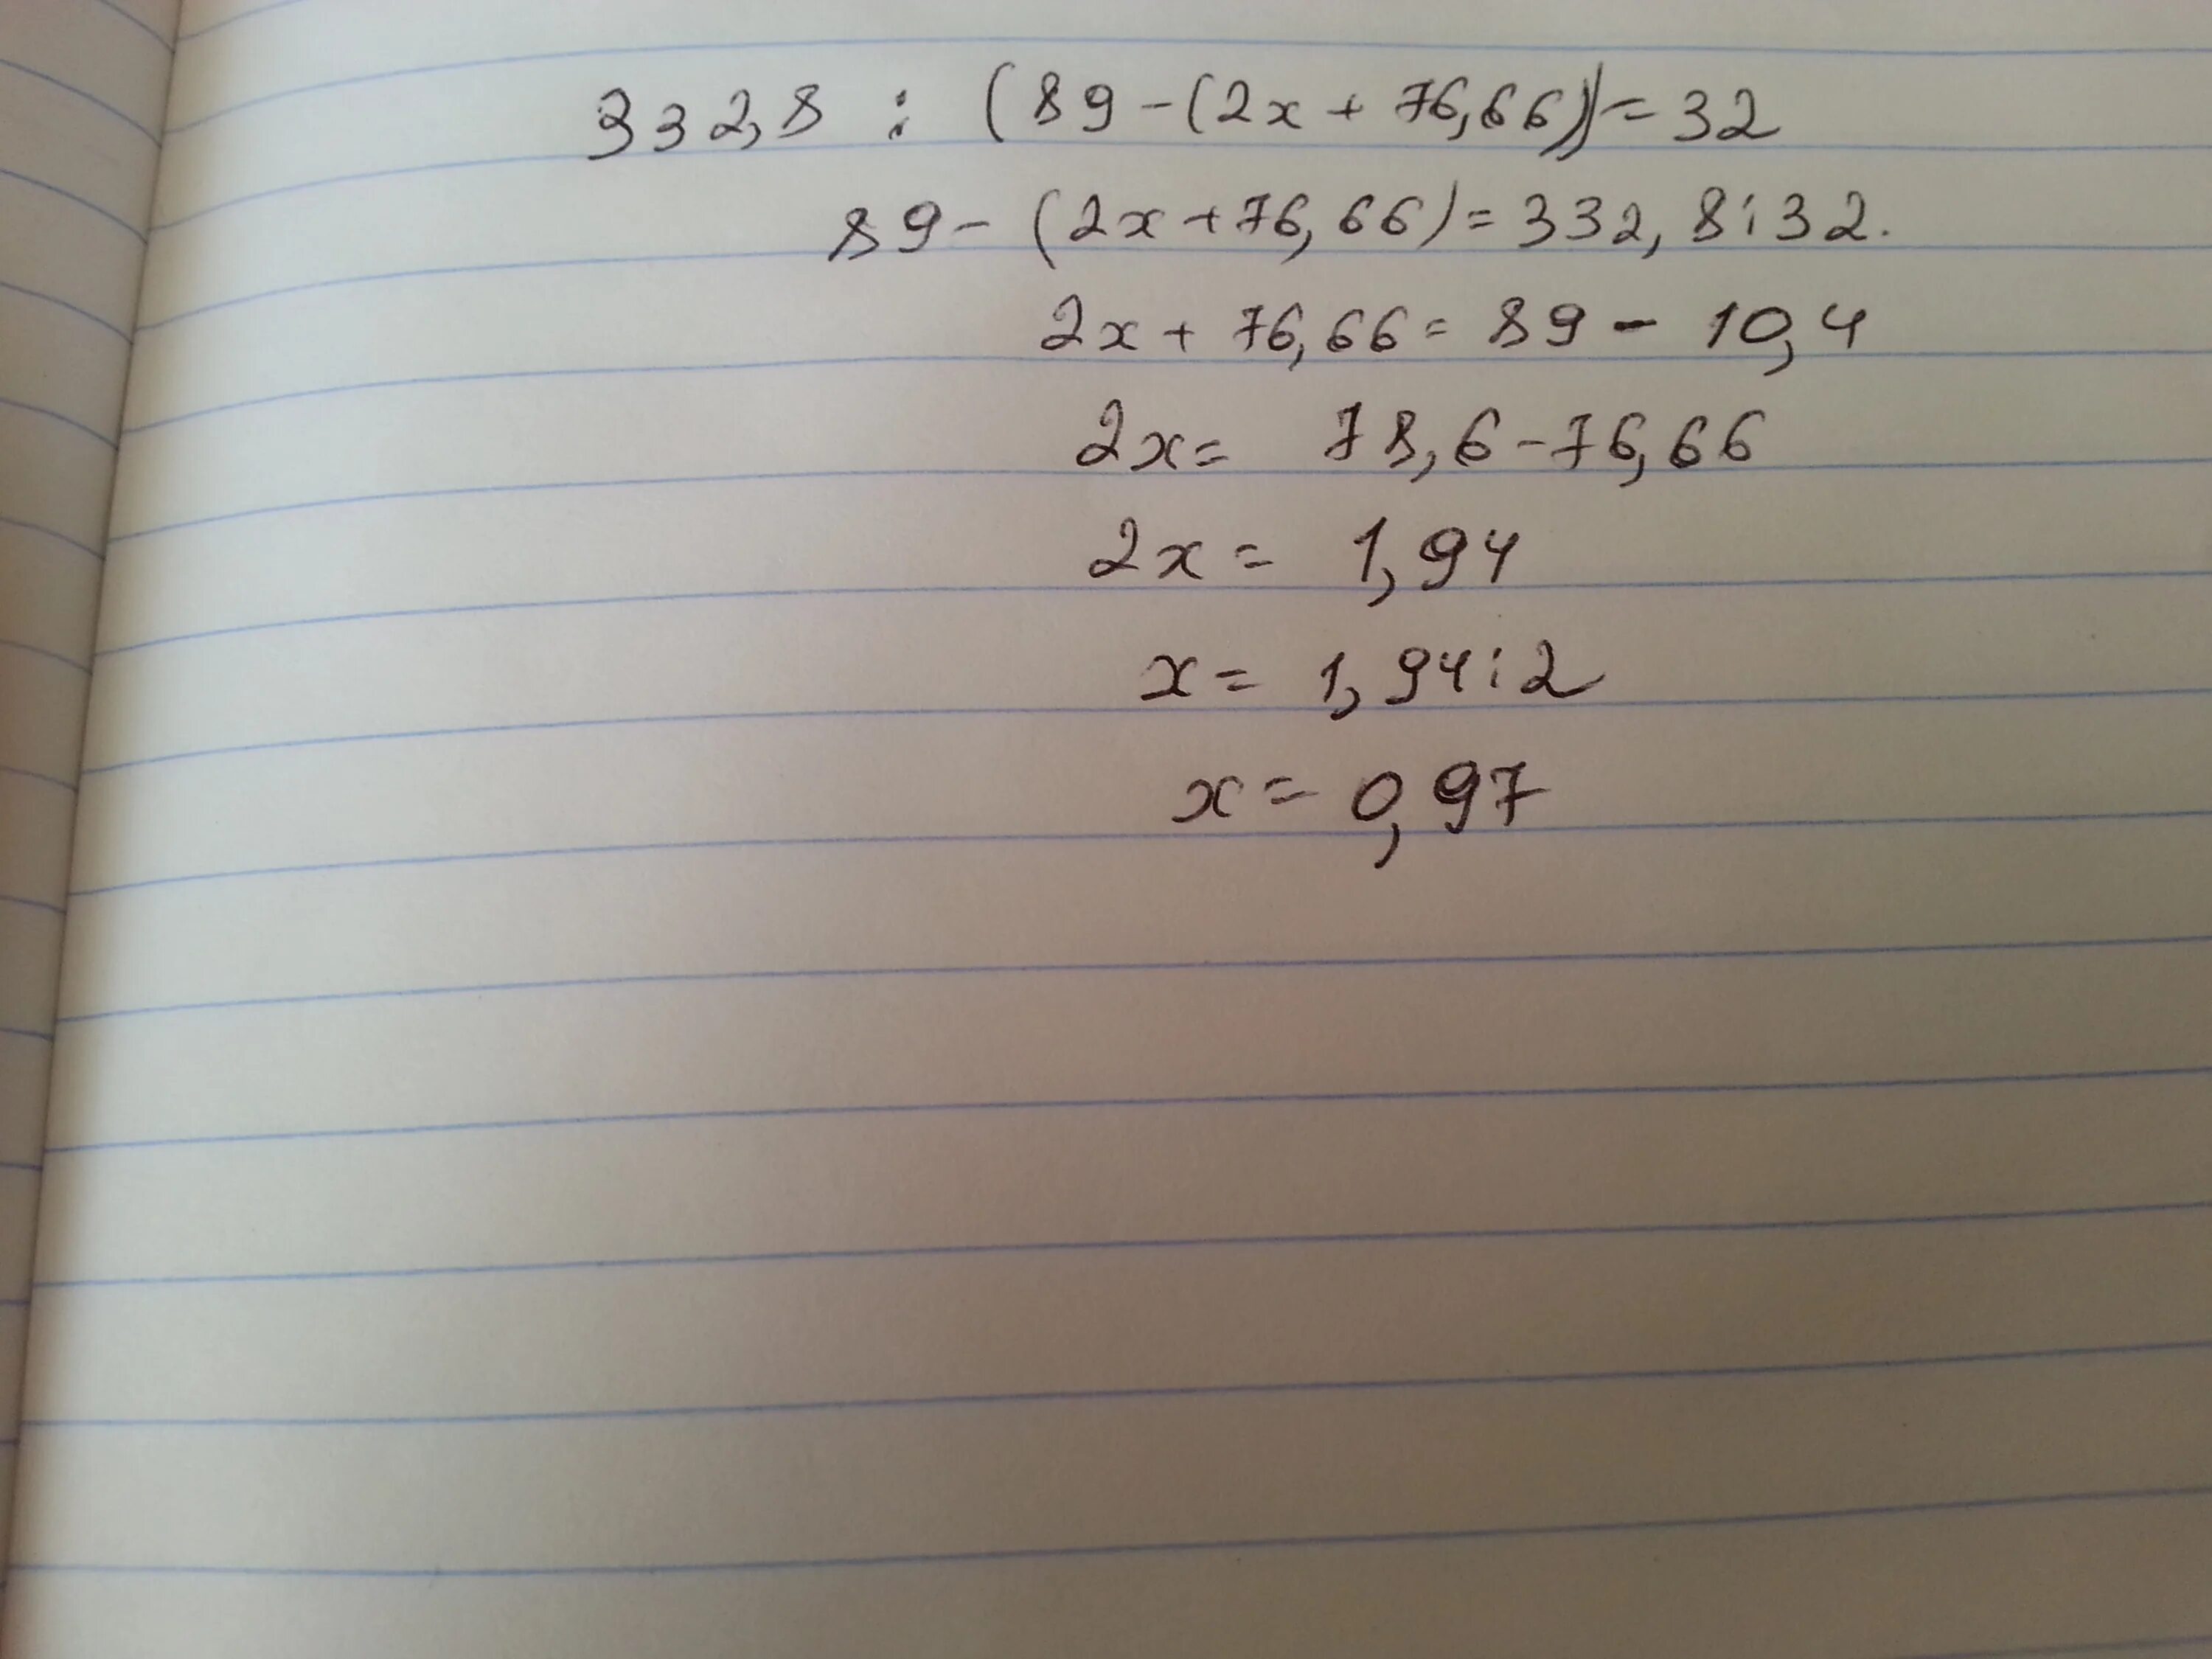 332,8 : (89-(2x+76,66))=32
89-(2x+76,66)=332,8:32.
2x+76,66=89-10,4
2x= 78,6-76,66
2x= 1,94
x= 1,94:2
x= 0,97